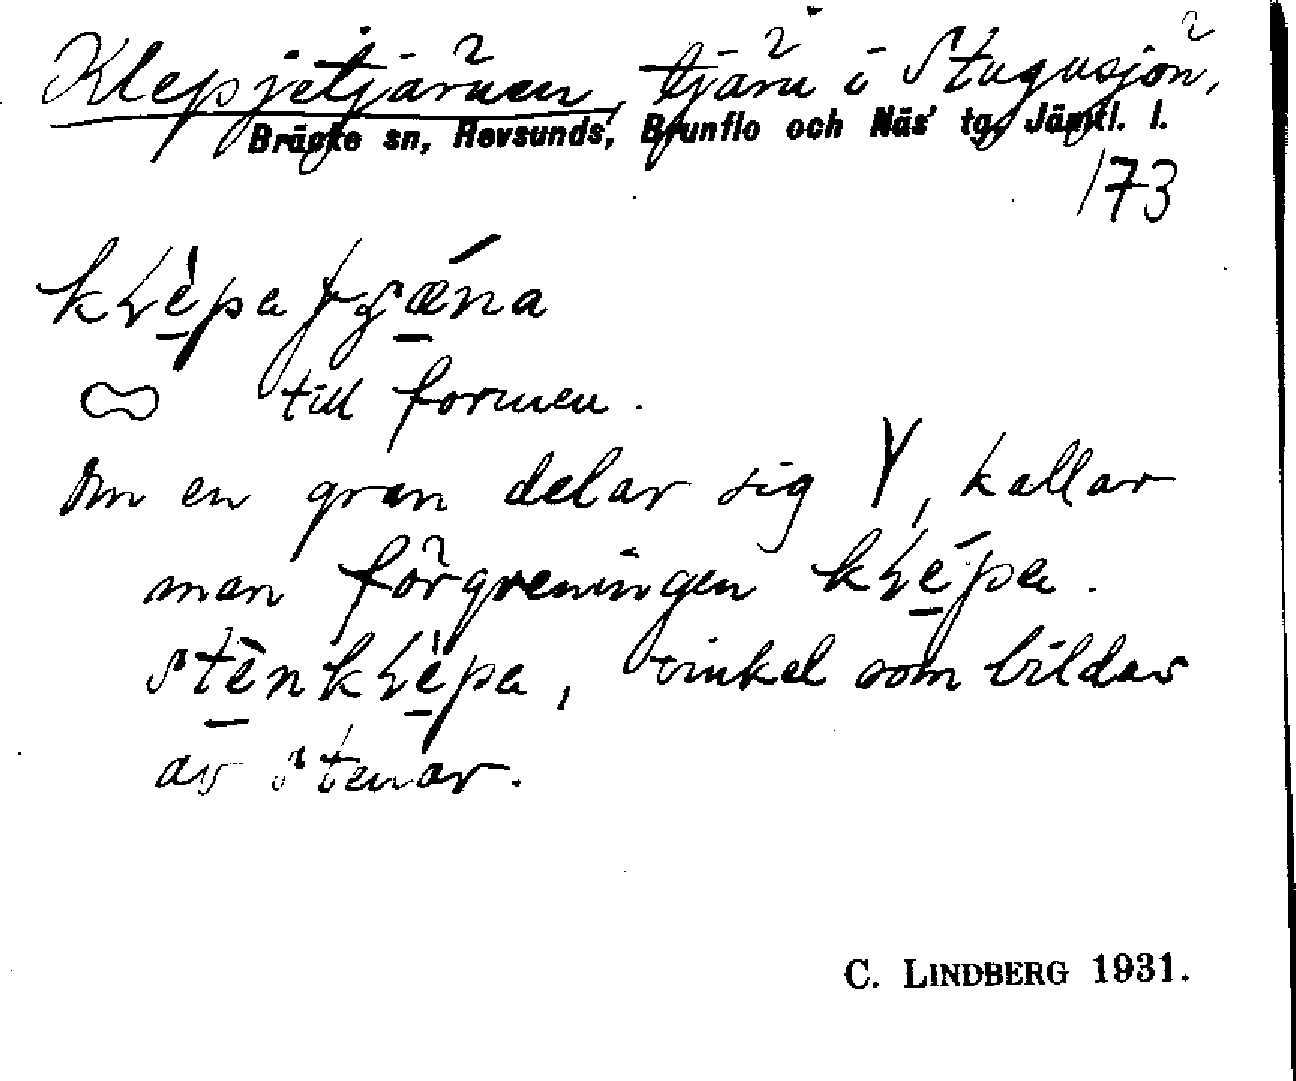 Klepjetjärnen, tjärn i Stugusjön,
Bräcke sn, Revsunds, Brunflo och Näs' tg, Jämtl. l.
173
till formen.
Om en gran delar sig Y, kallar
man förgreningen
vinkel som bildas
av stenar.
C. LINDBERG 1931.